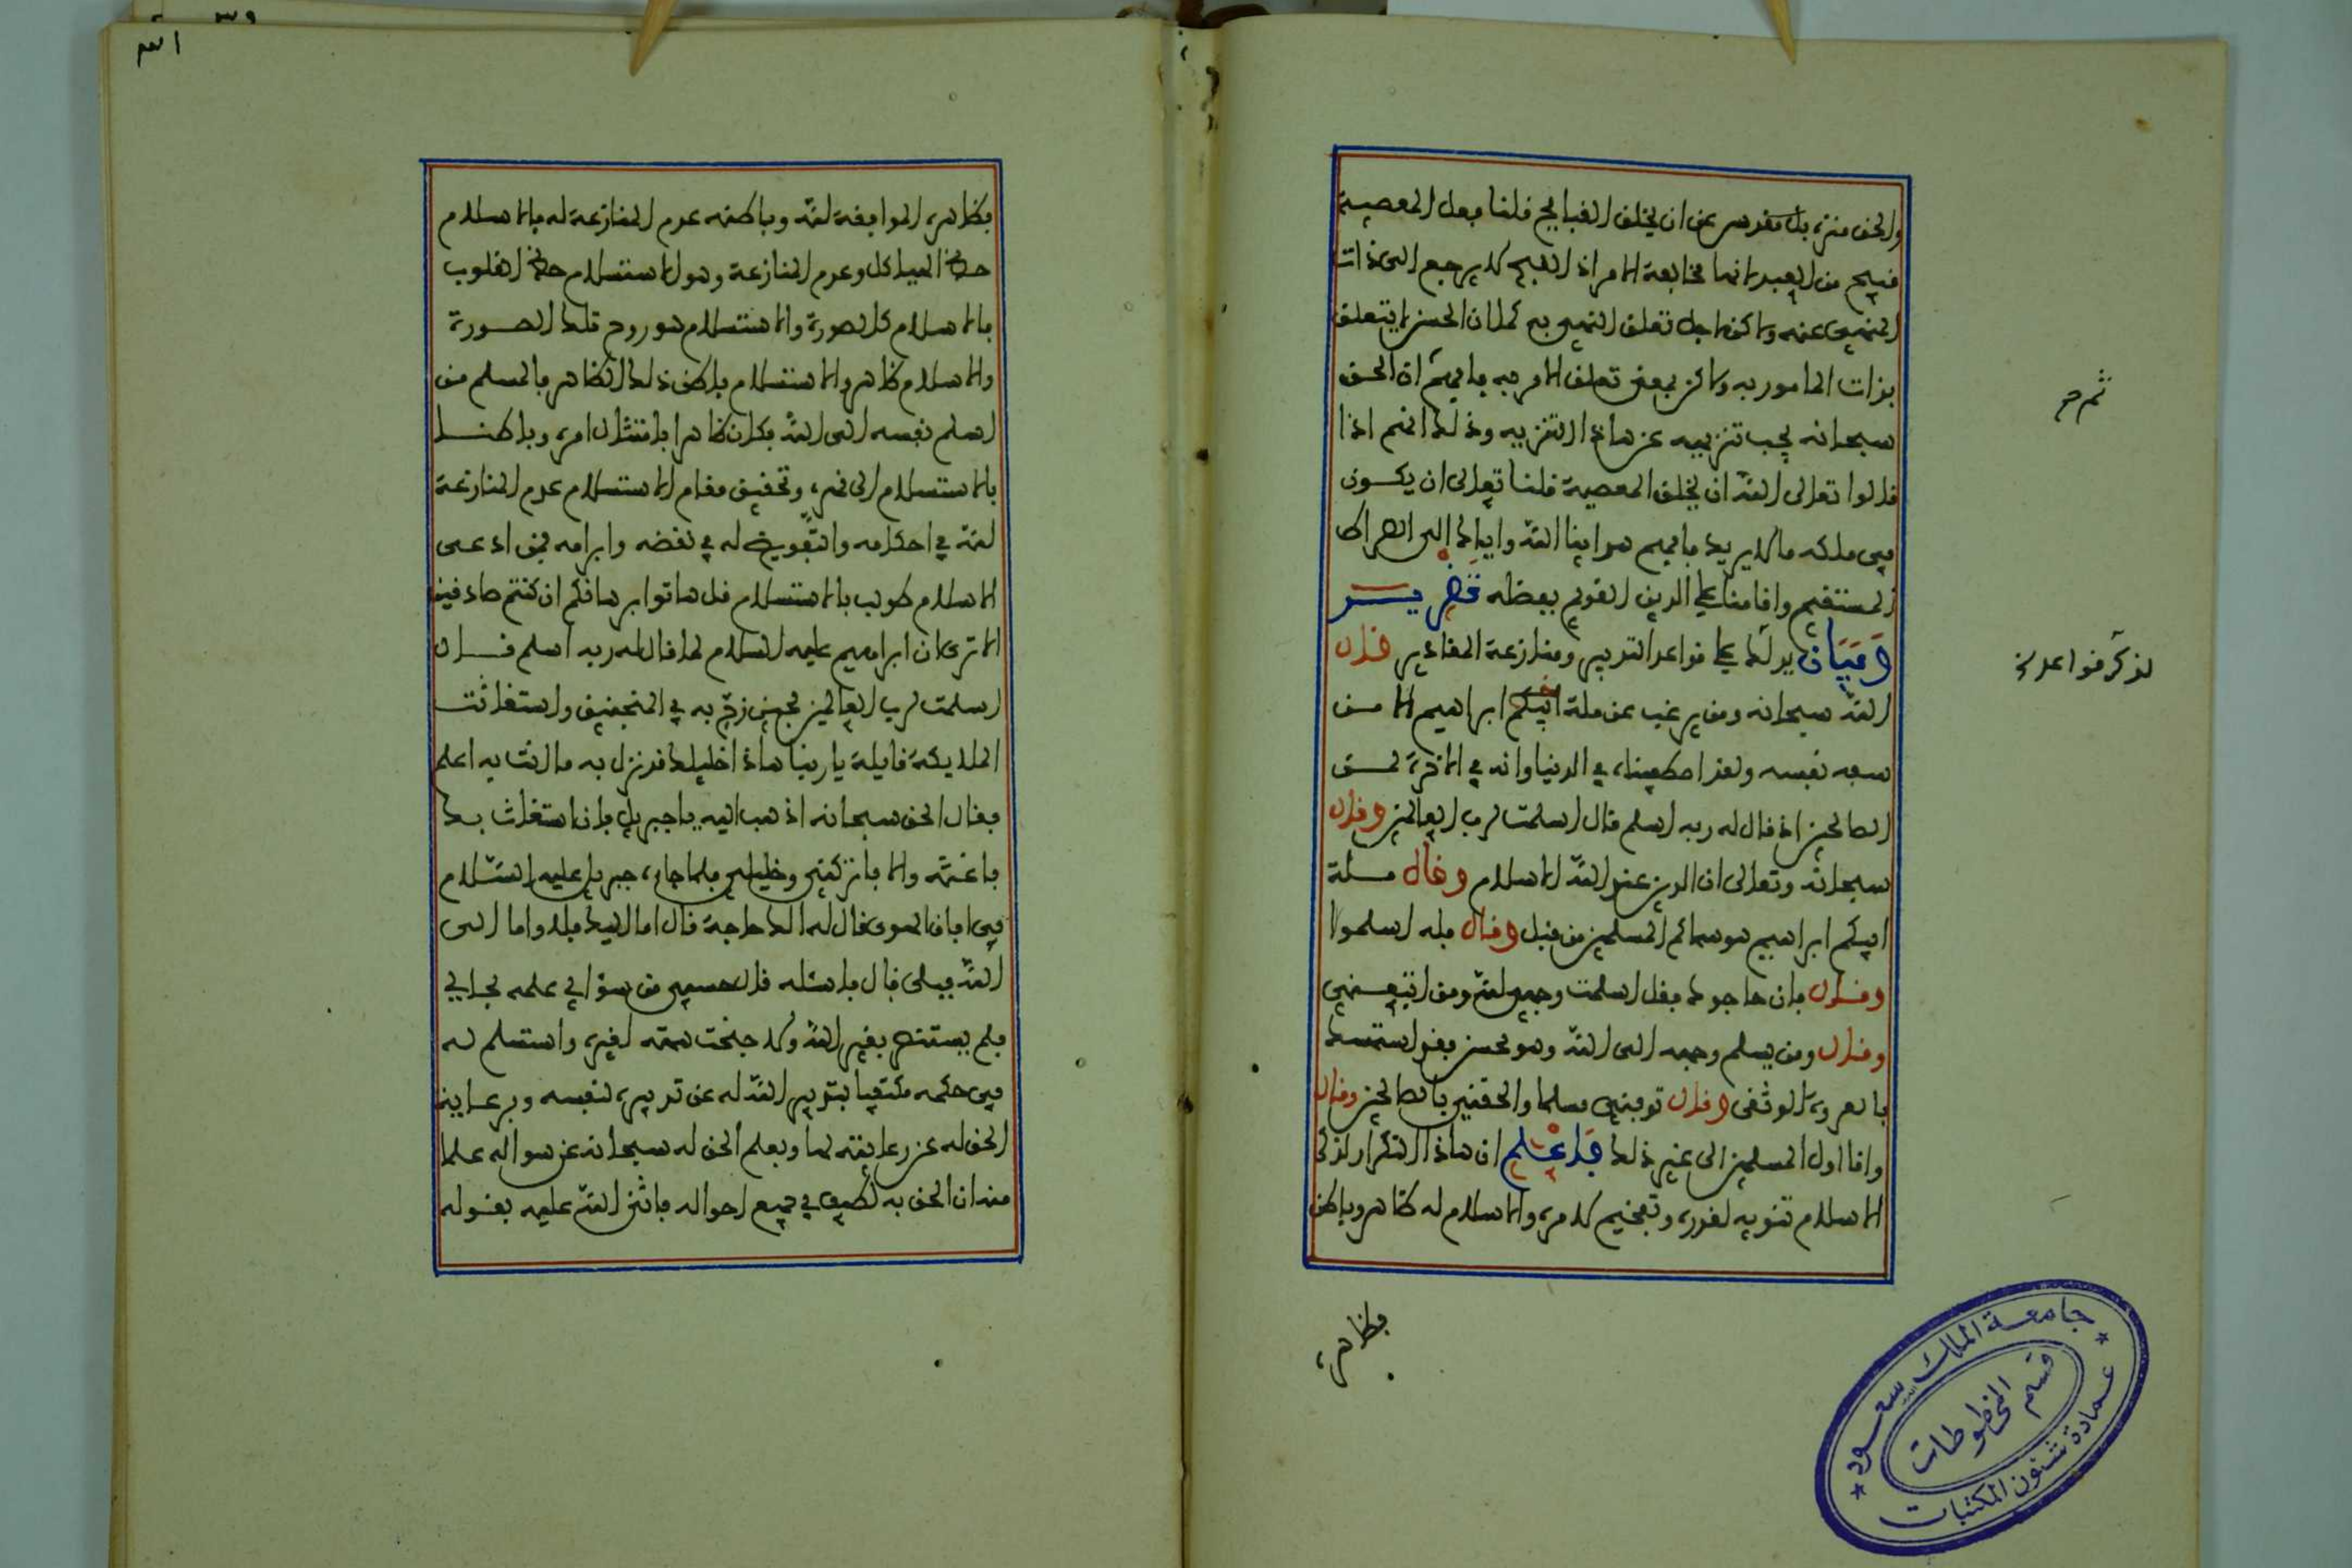 والحق منزه بل مقدس عن ان يخلق القبايح قلنا فعل المعصية
قبيح من العبد لانها مخالفة الامر اذ القبح لا يرجع الى ذات
المنهي عنه ولاكن لاجل تعلق النهي به كما ان الحسن لا يتعلق
بذات المامور به ولاكن بمعنى تعلق الامر به فافهم ان الحق
سبحانه يجب تنزيهه عن هاذا التنزيه وذلك انهم اذا
قالوا تعالى الله ان يخلق المعصية قلنا تعالى ان يكون
في ملكه ما لا يريد فافهم هدانا الله واياك الى الصراط
المستقيم واقامنا على الدين القويم بفضله تحرير
وبيان يدلك على قواعد التدبير ومنازعة المقادير قال
الله سبحانه ومن يرغب عن ملة ابراهيم الا من
سفه نفسه ولقد اصطفيناه في الدنيا وانه في الاخرة لمن
الصالحين اذ قال له ربه اسلم قال اسلمت لرب العالمين وقال
سبحانه وتعالى ان الدين عند الله الاسلام وقال ملة
ابيكم ابراهيم هو سماكم المسلمين من قبل وقال فله اسلموا
وقال فان حاجوك فقل اسلمت وجهي لله ومن اتبعني
وقال ومن يسلم وجهه الى الله وهو محسن فقد استمسك
بالعروة الوثقى وقال توفني مسلما والحقني بالصالحين وقال
وانا اول المسلمين الى غير ذلك فاعلم ان هاذا التكرار لذكر
الاسلام تنويه لقدره وتفخيم لامره والاسلام له ظاهر وباطن
فظاهره
ثم
لذكر قواعد
جامعة الملك سعود
قسم المخطوطات
عمادة شئون المكتبات
فظاهره الموافقة لله وباطنه عدم المنازعة له فالاسلام
حظ الهياكل وعدم المنازعة وهو الاستسلام حظ القلوب
فالاسلام كالصورة والاستسلام هو روح تلك الصورة
والاسلام ظاهر والاستسلام باطن ذلك الظاهر فالمسلم من
اسلم نفسه الى الله فكان ظاهرا بامتثال امره وباطنا
بالاستسلام الى قهره وتحقيق مقام الاستسلام عدم المنازعة
لله في احكامه والتفويض له في نقضه وابرامه فمن ادعى
الاسلام طولب بالاستسلام قل هاتوا برهانكم ان كنتم صادقين
الا ترى ان ابراهيم عليه السلام لما قال له ربه اسلم قال
اسلمت لرب العالمين فحين زج به في المنجنيق واستغاثت
الملايكة قايلة يا ربنا هاذا خليلك قد نزل به ما انت به اعلم
فقال الحق سبحانه اذهب اليه يا جبريل فان استغاث بك
فاغثه والا فاتركني وخليلي فلما جاءه جبريل عليه السلام
في افق الهوى فقال له الك حاجة قال اما اليك فلا واما الى
الله فبلى قال فاسئله قال حسبي من سؤالي علمه بحالي
فلم يستنصر بغير الله ولا جنحت همته لغيره واستسلم له
في حكمه مكتفيا بتدبير الله له عن تدبيره لنفسه وبرعاية
الحق له عن رعايته لها وبعلم الحق له سبحانه عن سواله علما
منه ان الحق به لطيف في جميع احواله فاثنى الله عليه بقوله